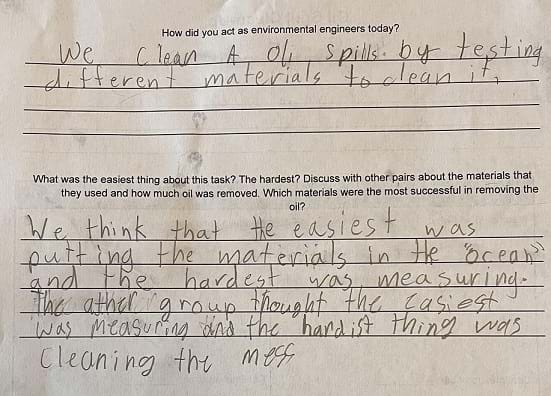 How did you act as environmental engineers today?
We Clean A Oli spills. by testing
different materials to clean it.
What was the easiest thing about this task? The hardest? Discuss with other pairs about the materials that
they used and how much oil was removed. Which materials were the most successful in removing the
oil?
We think that the easiest was
putting the materials in the "ocean"
and the hardest was measuring.
The other group thought the easiest
was measuring and the hardist thing was
cleaning the mess